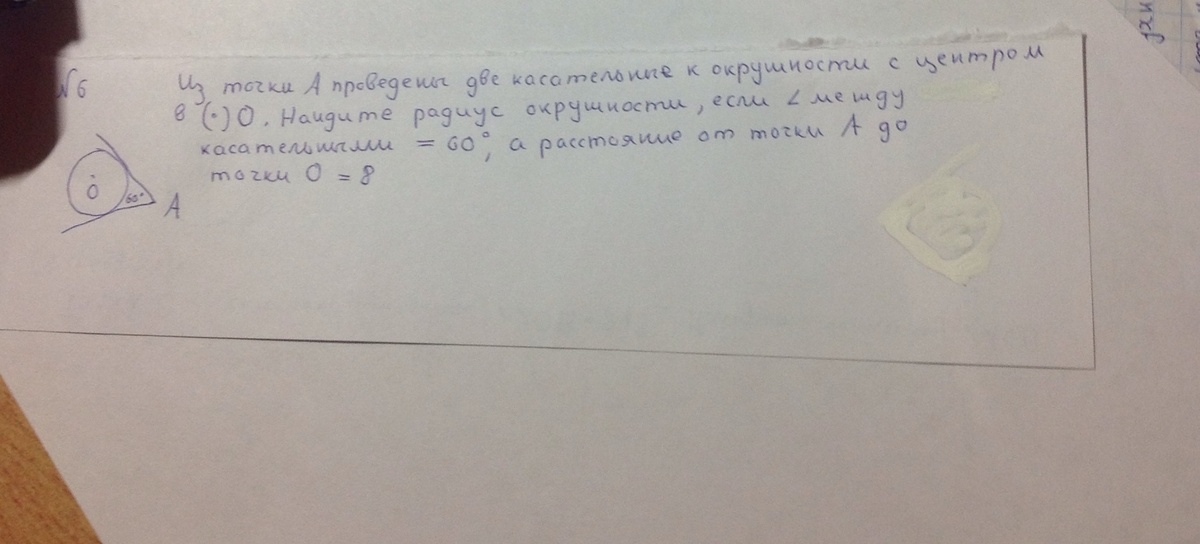 №6
Из точки А проведены две касательные к окрушности с центром
в (•) О. Найдите радиус окрушности, если ∠ между
касательными = 60°, а расстояние от точки А до
точки О = 8
О
60°
А